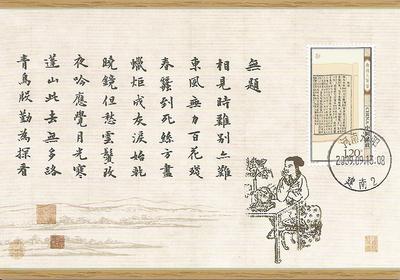 無題
相見時難別亦難
東風無力百花殘
春蠶到死絲方盡
蠟炬成灰淚始乾
曉鏡但愁雲鬢改
夜吟應覺月光寒
蓬山此去無多路
青鳥殷勤為探看
120
2009.09.13-08